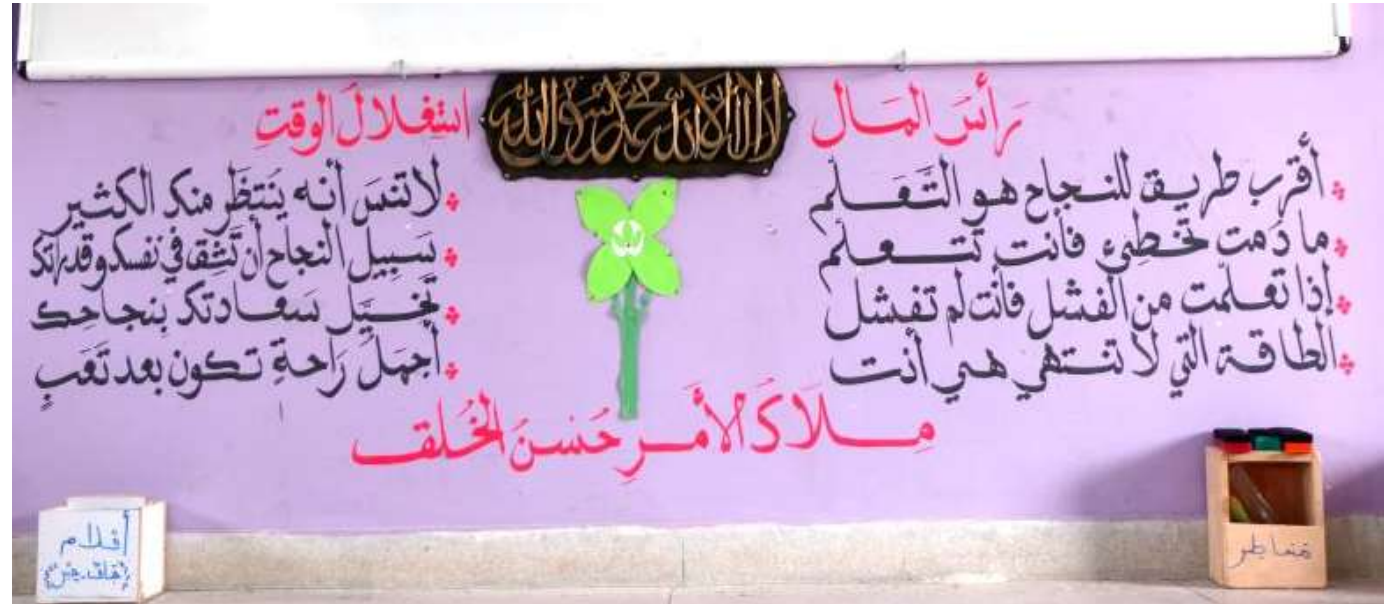 رأسُ المال
لا إله إلا الله محمد رسول الله
استغلالُ الوقتِ
أقرب طريق للنجاح هو التَّعَلُّم
ما دُمت تخطِئ فأنت تتعلم
إذا تعلّمت من الفشل فأنت لم تفشل
الطاقة التي لا تنتهي هي أنت
لا تنسَ أنه يُنتظَر منك الكثير
سَبِيل النجاح أن تَثِقَ في نفسك وقدراتك
تخيَّل سعادتك بنجاحِك
أجمَل رَاحةٍ تكون بعد تَعَبٍ
مِلَاكُ الأمرِ حُسنُ الخُلق
أقلام